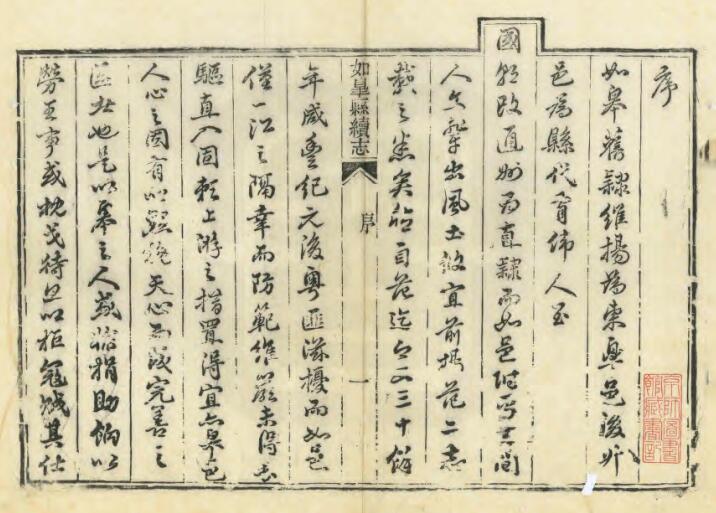 序
如皋舊隸維揚為東邑後
邑為縣代偉人至
國朝改通州為直隸而如邑附焉其間
人文出風土攸宜前楊范二志
載之悉矣自范迄今又三十餘
如皋縣續志
序
一
年咸豐紀元後粵匪滋擾而如邑
僅一江之隔幸而防範維嚴未得長
驅直入固賴上游之措置得宜亦皋邑
人心之固有以默挽天心而成完善之
區也是以皋之人或輸捐助餉以
勞王事或枕戈待旦以拒寇賊其仕
京師圖書
館藏書印